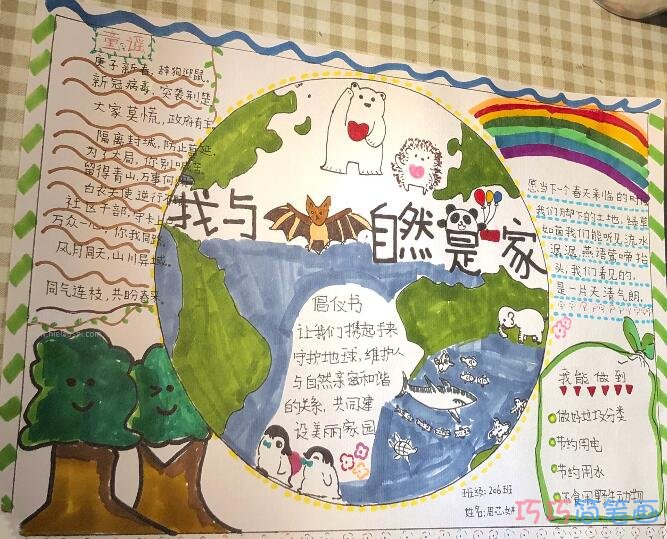 童谣
庚子新春，辞狗迎鼠。
新冠病毒，突袭荆楚。
大家莫慌，政府有主。
隔离封城，防止蔓延。
为了大局，你别
留得青山，万事何
白衣天使逆行
社区干部，守卡
万众一心，你我同
风月同天，山川异域。
同气连枝，共盼春来。
我与自然是一家
倡仪书
让我们携起手来
守护地球，维护人
与自然亲密和谐
的关系，共同建
设美丽家园
班级：206班
姓名：周芯妍
愿当下一个春天来临的时候
我们脚下的土地，绿草
如茵我们能听见，流水
潺潺，燕语莺啼抬
头，我们看见的，
是一片天清气朗。
我能做到
做好垃圾分类
节约用电
节约用水
不食用野生动物
巧巧简笔画